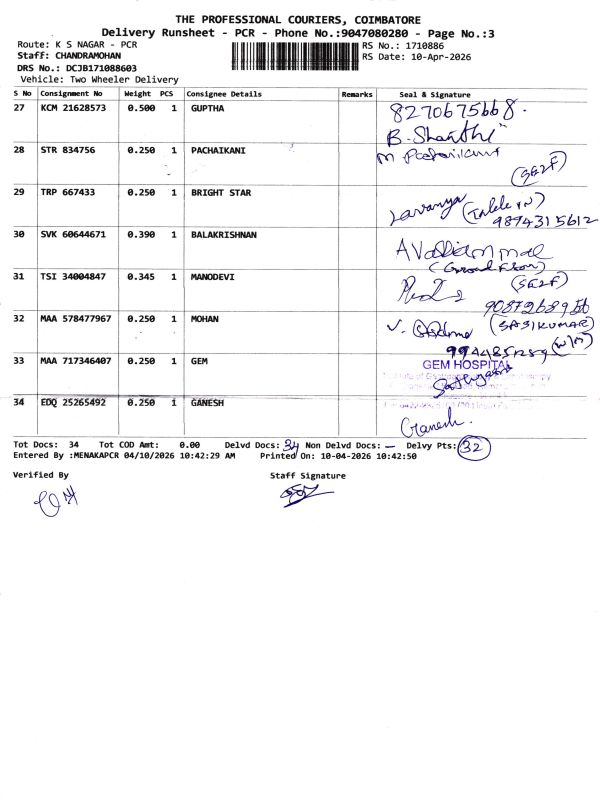 THE PROFESSIONAL COURIERS, COIMBATORE
Delivery Runsheet - PCR - Phone No.:9047080280 - Page No.:3
Route: K S NAGAR - PCR
RS No.: 1710886
Staff: CHANDRAMOHAN
RS Date: 10-Apr-2026
DRS No.: DCJB171088603
Vehicle: Two Wheeler Delivery
S No Consignment No Weight PCS Consignee Details Remarks Seal & Signature
27 KCM 21628573 0.500 1 GUPTHA 8270675668.
B. Shanthi
28 STR 834756 0.250 1 PACHAIKANI
29 TRP 667433 0.250 1 BRIGHT STAR Lavanya
9894315612
30 SVK 60644671 0.390 1 BALAKRISHNAN
(Ground Floor)
31 TSI 34004847 0.345 1 MANODEVI
32 MAA 578477967 0.250 1 MOHAN (SASIKUMAR)
33 MAA 717346407 0.250 1 GEM GEM HOSPITAL
34 EDQ 25265492 0.250 1 GANESH
Ganesh.
Tot Docs: 34 Tot COD Amt: 0.00 Delvd Docs: 34 Non Delvd Docs: — Delvy Pts: 32
Entered By :MENAKAPCR 04/10/2026 10:42:29 AM Printed On: 10-04-2026 10:42:50
Verified By Staff Signature